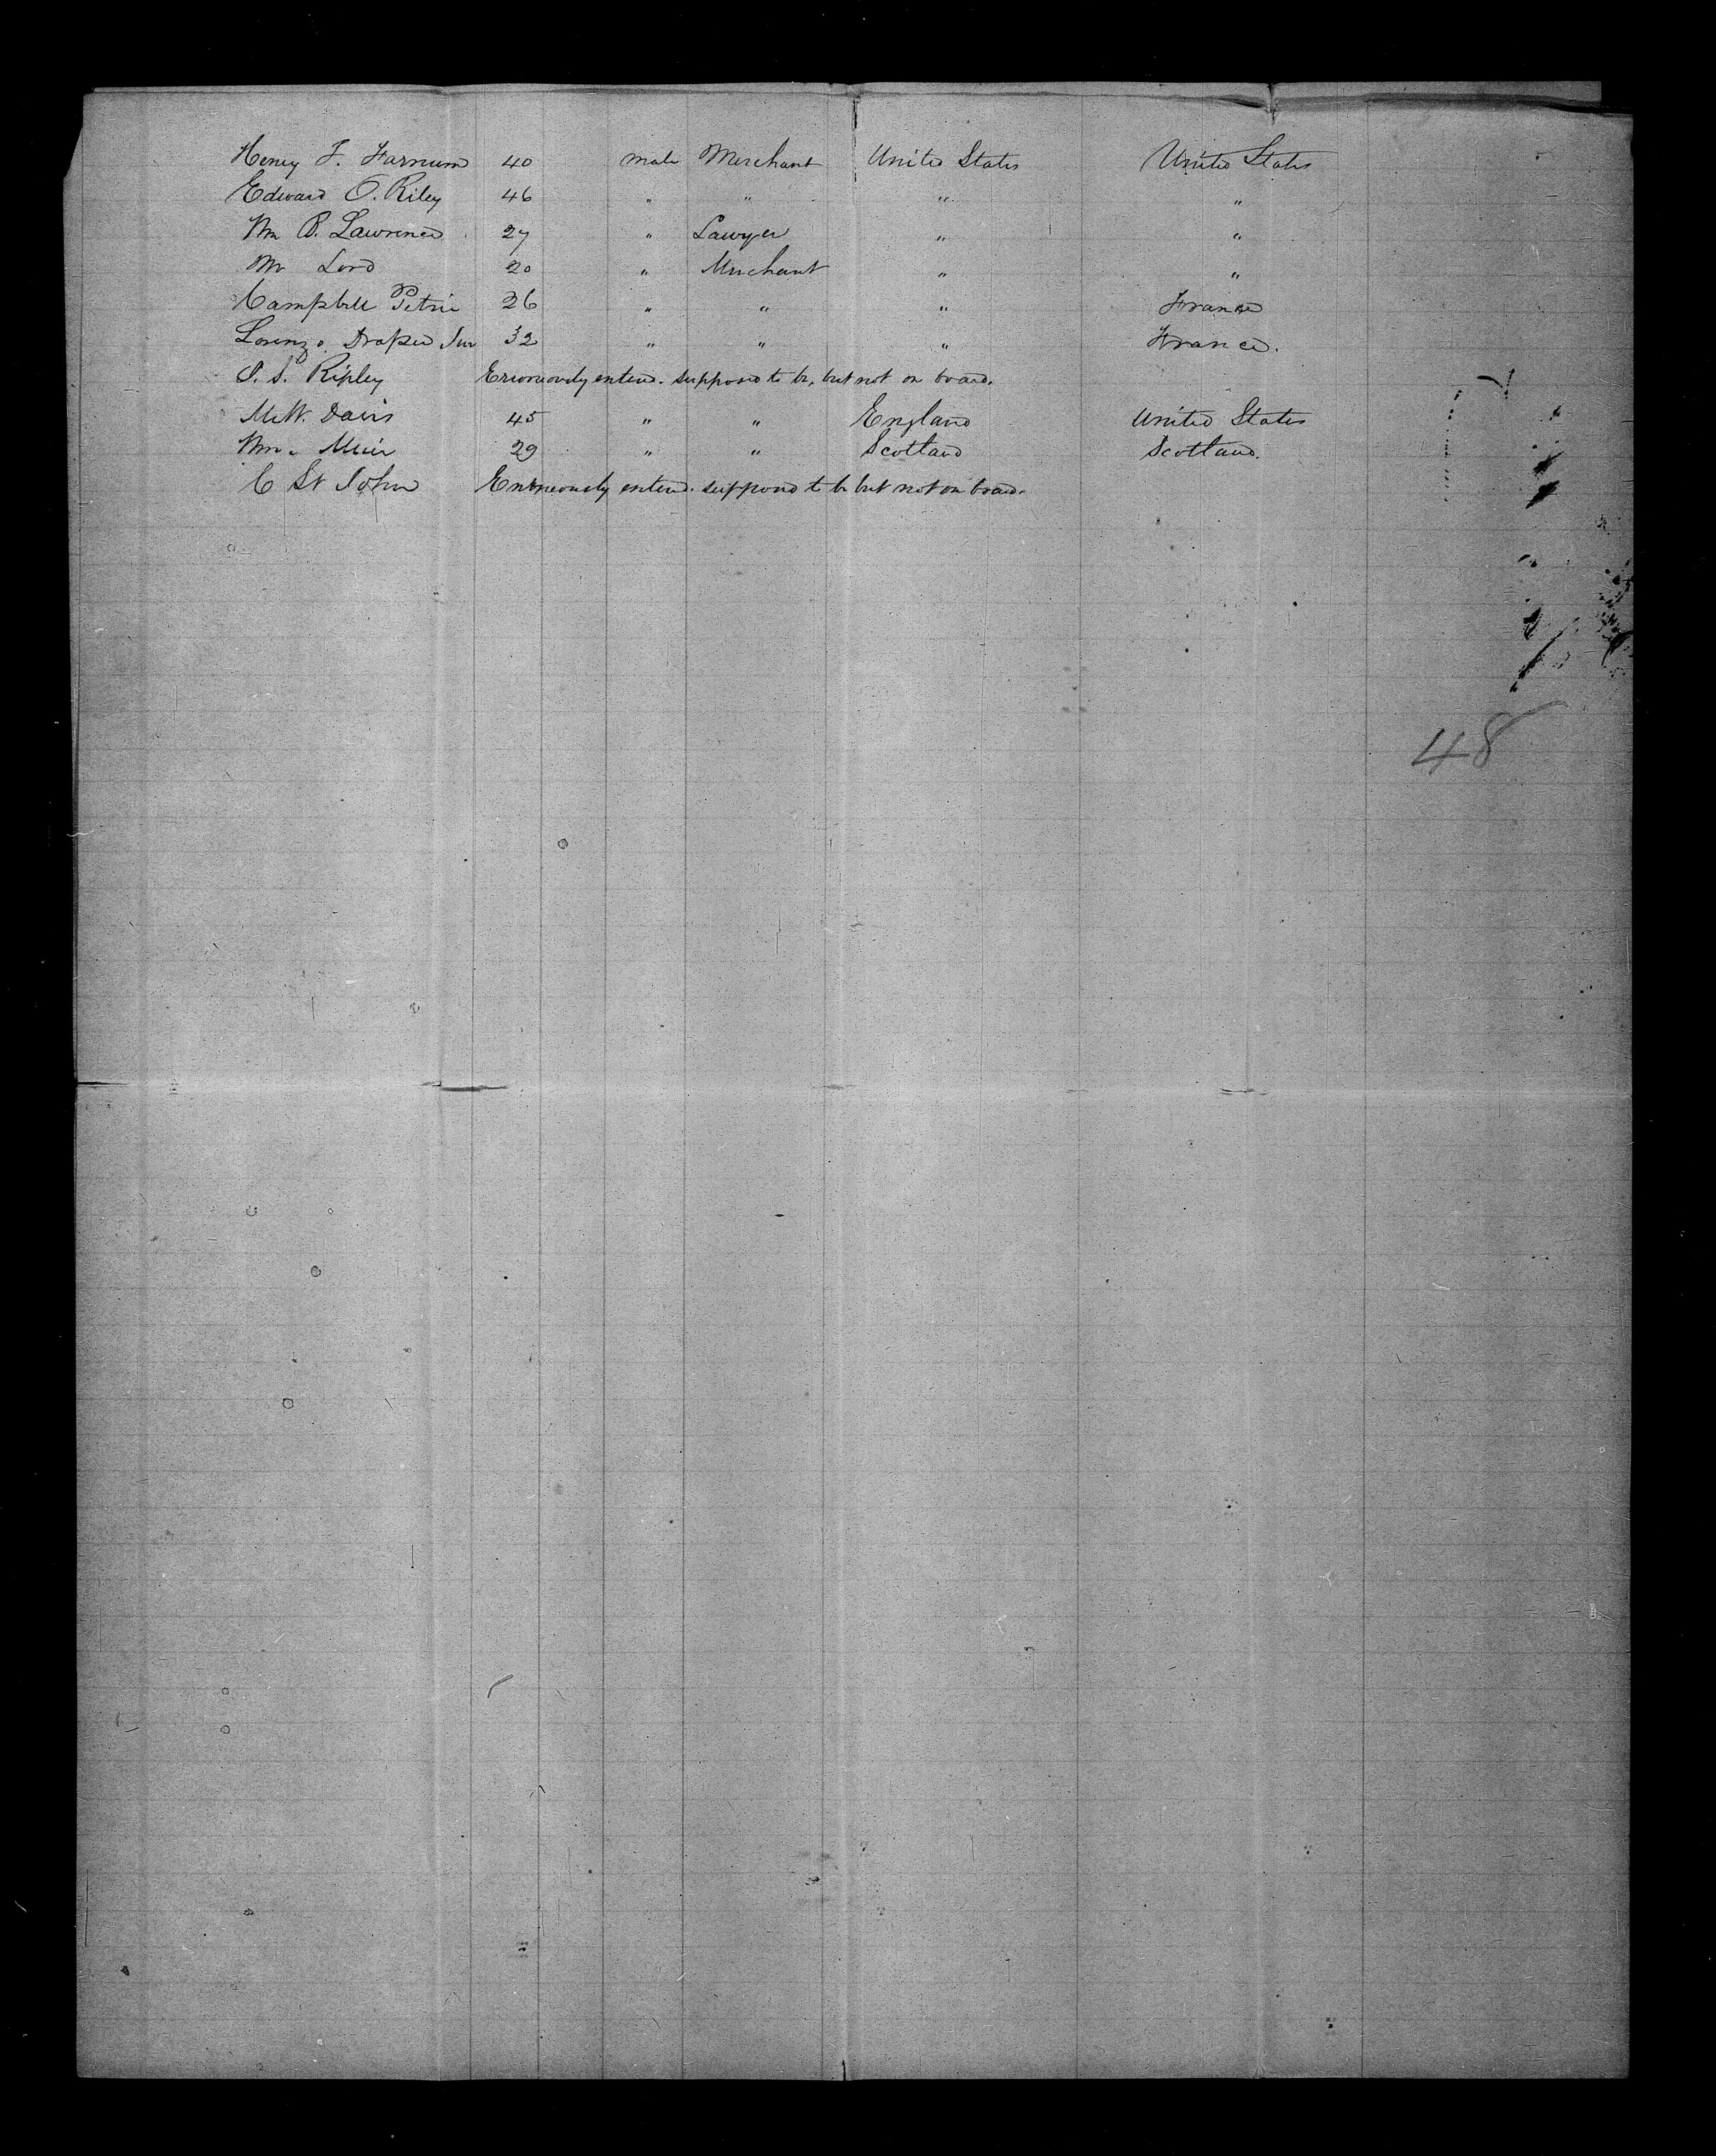 Henry F. Farnum 40 male Merchant United States United States
Edward O. Riley 46 " " " "
Wm B. Lawrence 27 " Lawyer " "
Mr Lord 20 " Merchant " "
Campbell Petrie 26 " " " France
Lorenzo Draper Jur 32 " " " France.
S. S. Ripley Erroneously entered. supposed to be, but not on board.
M. W. Davis 45 " " England United States
Wm. Muir 29 " " Scotland Scotland.
C St John Erroneously entered. supposed to be but not on board.
48